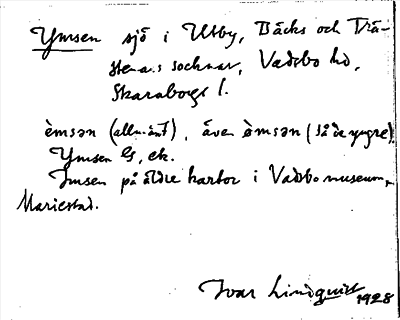 Ymsen sjö i Utby, Bäcks och Trä-
stena:s socknar, Vadsbo hd,
Skaraborgs l.
èmsən (allmänt), även ømsən (så de yngre)
Ymsen GS, ek.
Imsen på äldre kartor i Vadsbo museum,
Mariestad.
Ivar Lindquist 1928